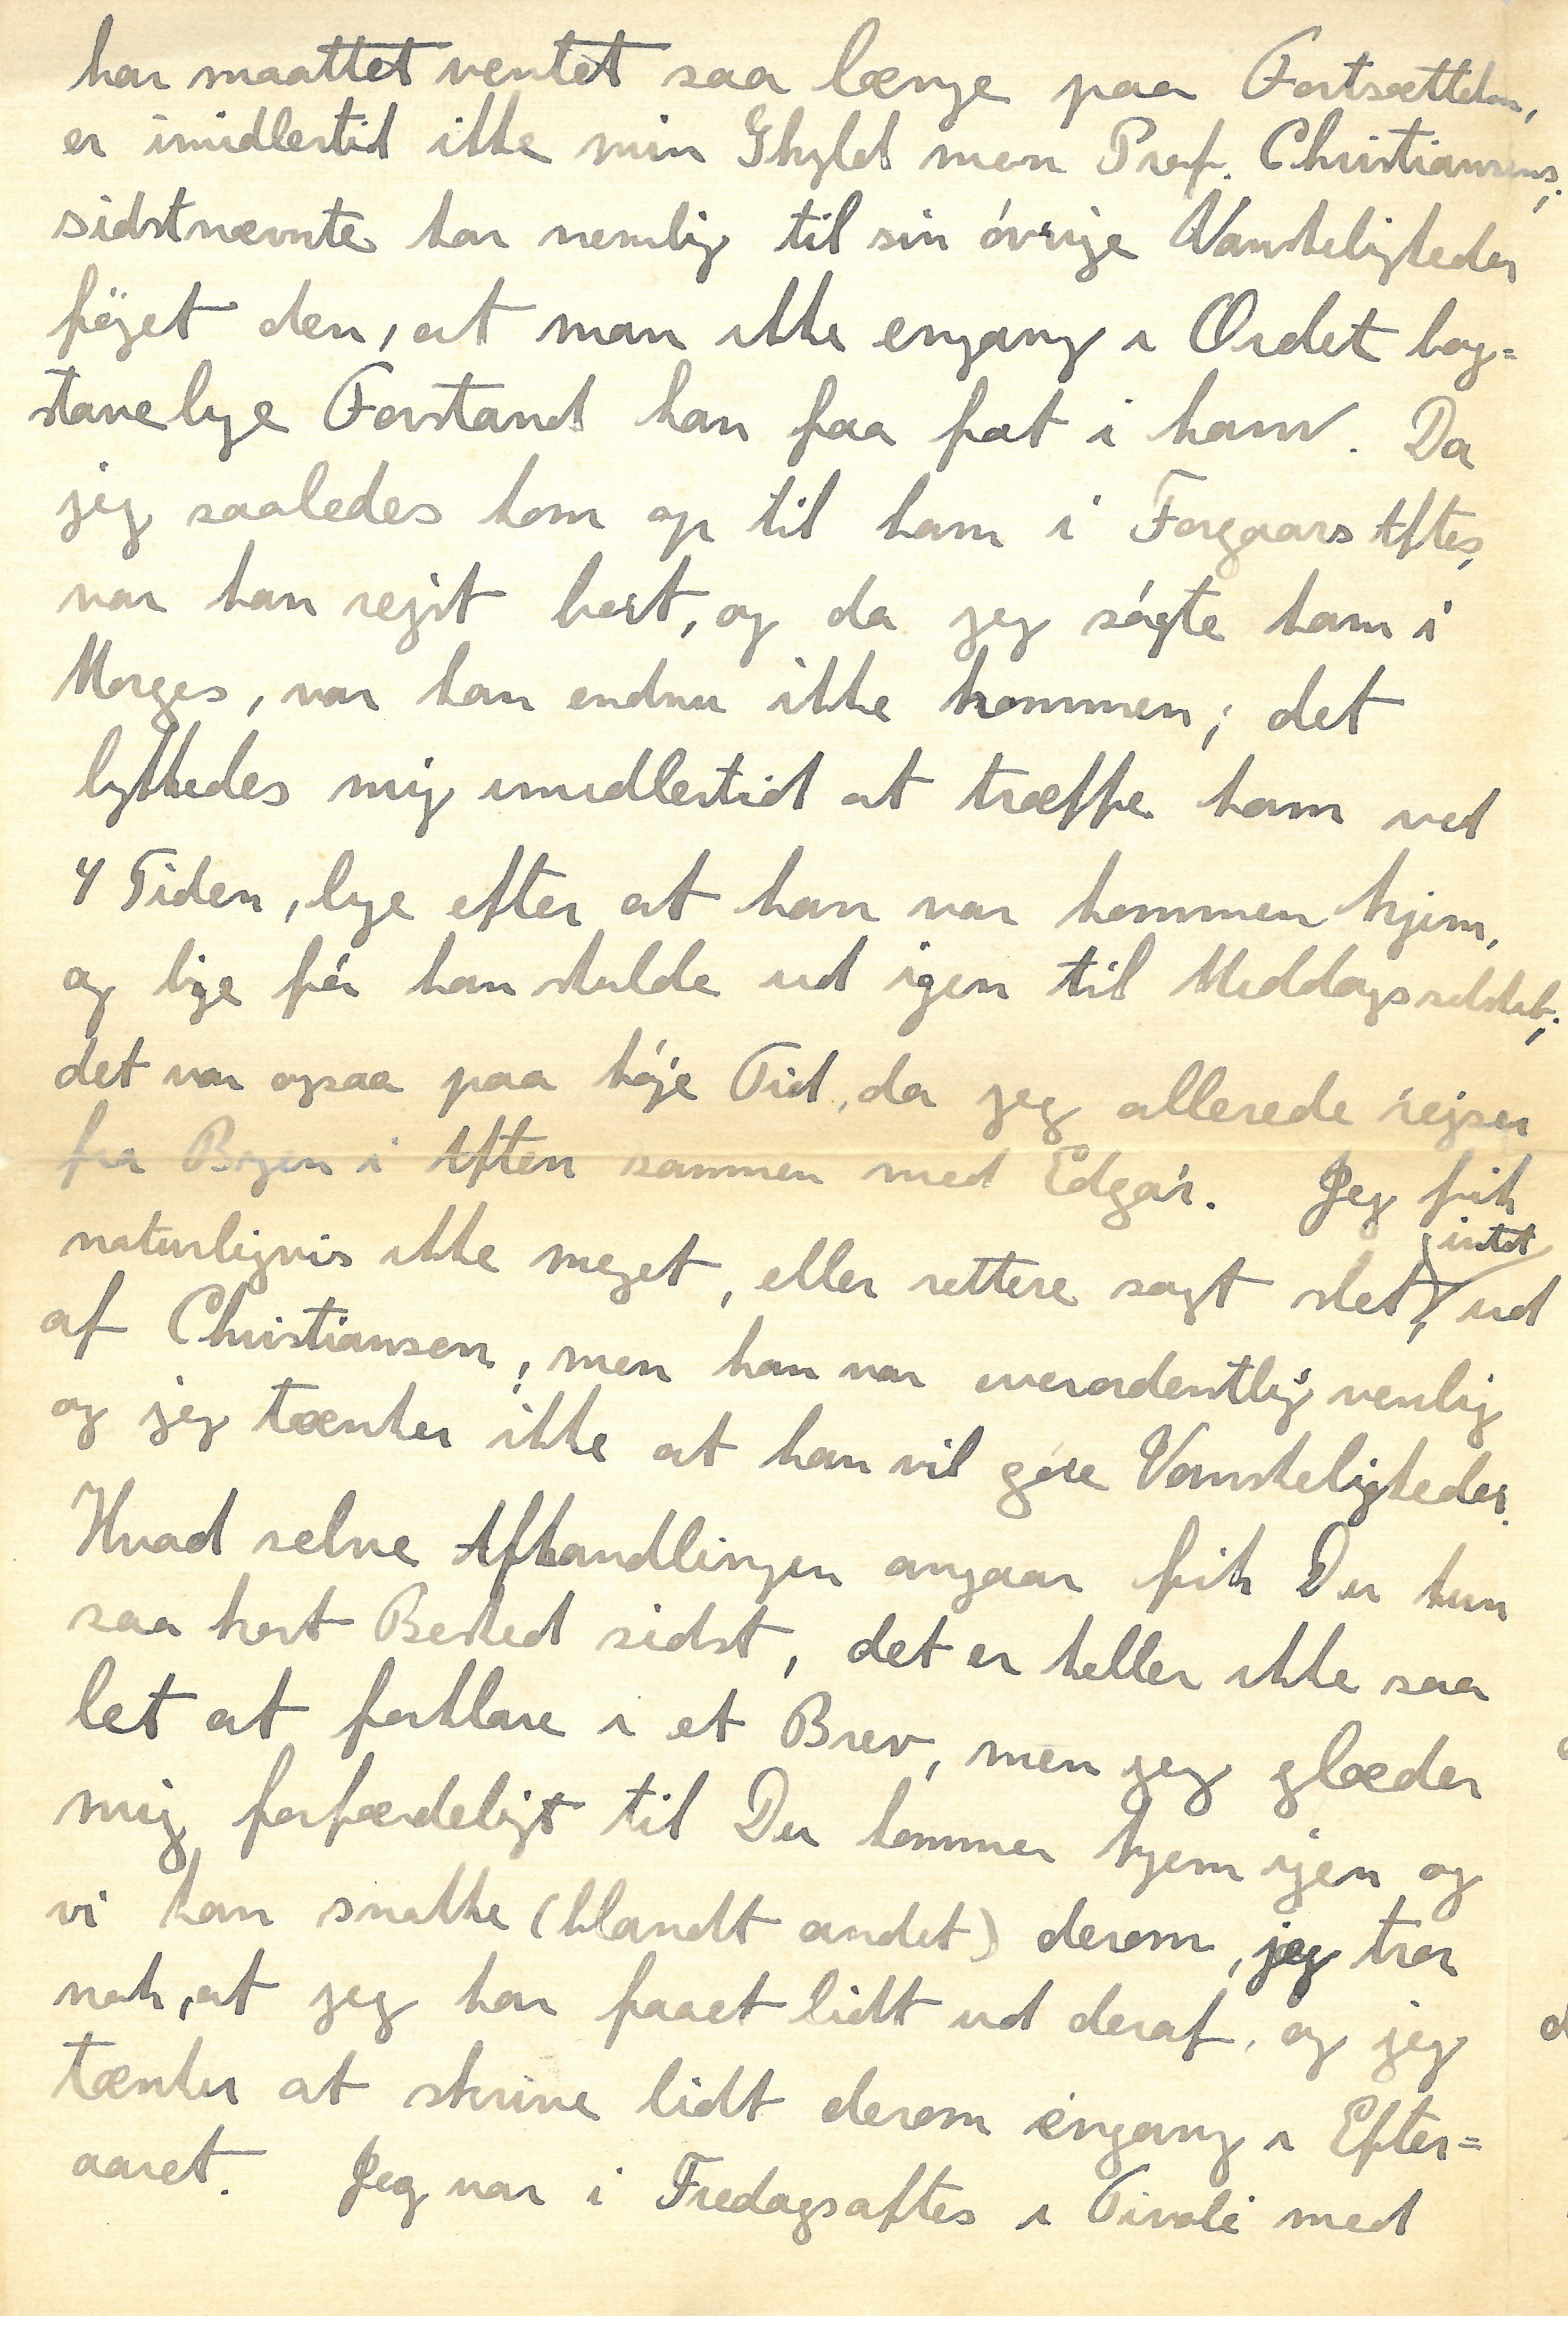 har maattet ventet saa længe paa Fortsættelsen,
er imidlertid ikke min Skyld men Prof. Christiansens;
sidstnævnte har nemlig til sin övrige Vanskeligheder
föjet den, at man ikke engang i Ordet bog=
stavelige Forstand kan faa fat i ham. Da
jeg saaledes kom op til ham i Forgaars Aftes,
var han rejst bort, og da jeg sögte ham i
Morges, var han endnu ikke kommen; det
lykkedes mig imidlertid at træffe ham ved
4 Tiden, lige efter at han var kommen hjem,
og lige för han skulde ud igen til Middagsselskab;
det var ogsaa paa höje Tid, da jeg allerede rejser
fra Byen i Aften sammen med Edgar. Jeg fik
naturligvis ikke meget, eller rettere sagt slet intet, ud
af Christiansen; men han var overordentlig venlig
og jeg tænker ikke at han vil göre Vanskeligheder.
Hvad selve Afhandlingen angaar fik Du kun
saa kort Besked sidst, det er heller ikke saa
let at forklare i et Brev, men jeg glæder
mig forfærdeligt til Du kommer hjem igen og
vi kan snakke (blandt andet) derom, jeg tror
nok, at jeg har faaet lidt ud deraf, og jeg
tænker at skrive lidt derom engang i Efter=
aaret. Jeg var i Fredagsaftes i Tivoli med